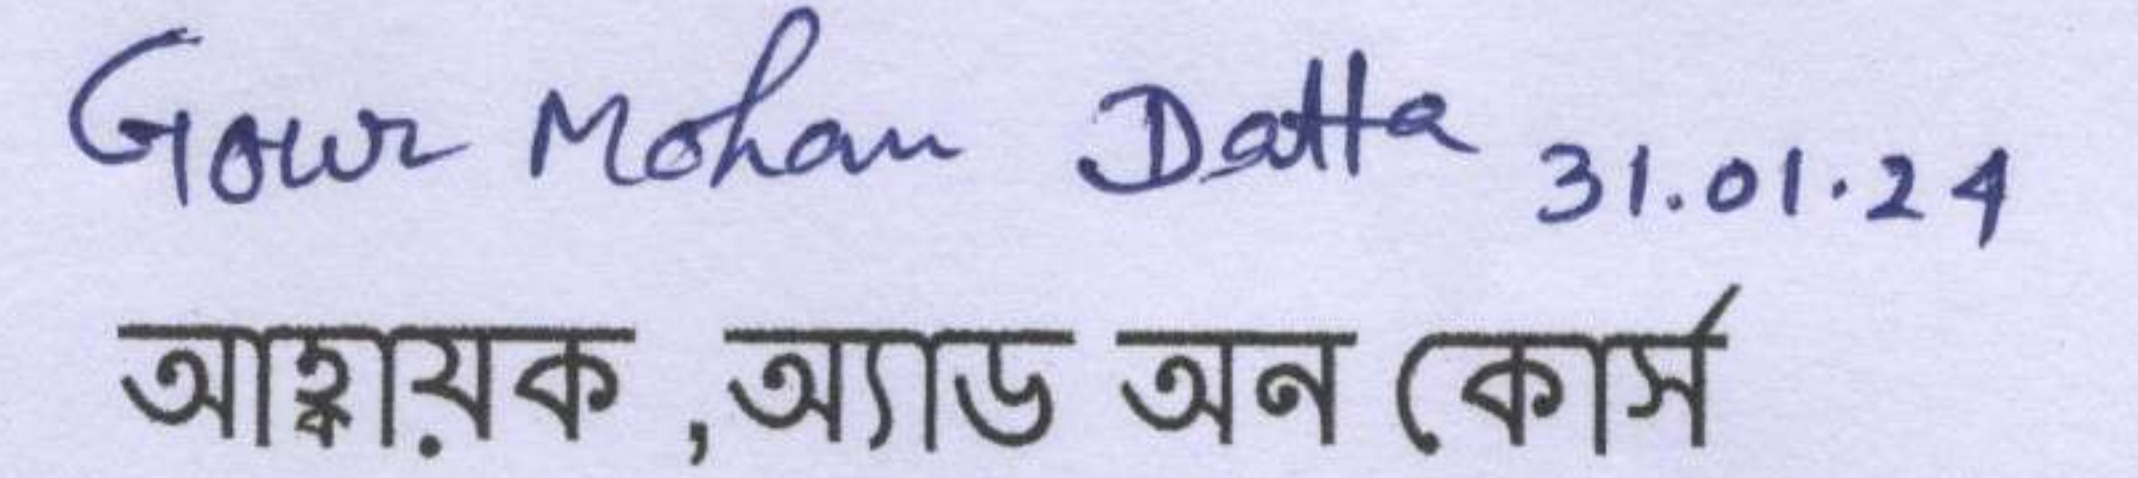 Gour Mohan Datta 31.01.24
আহ্বায়ক ,অ্যাড অন কোর্স